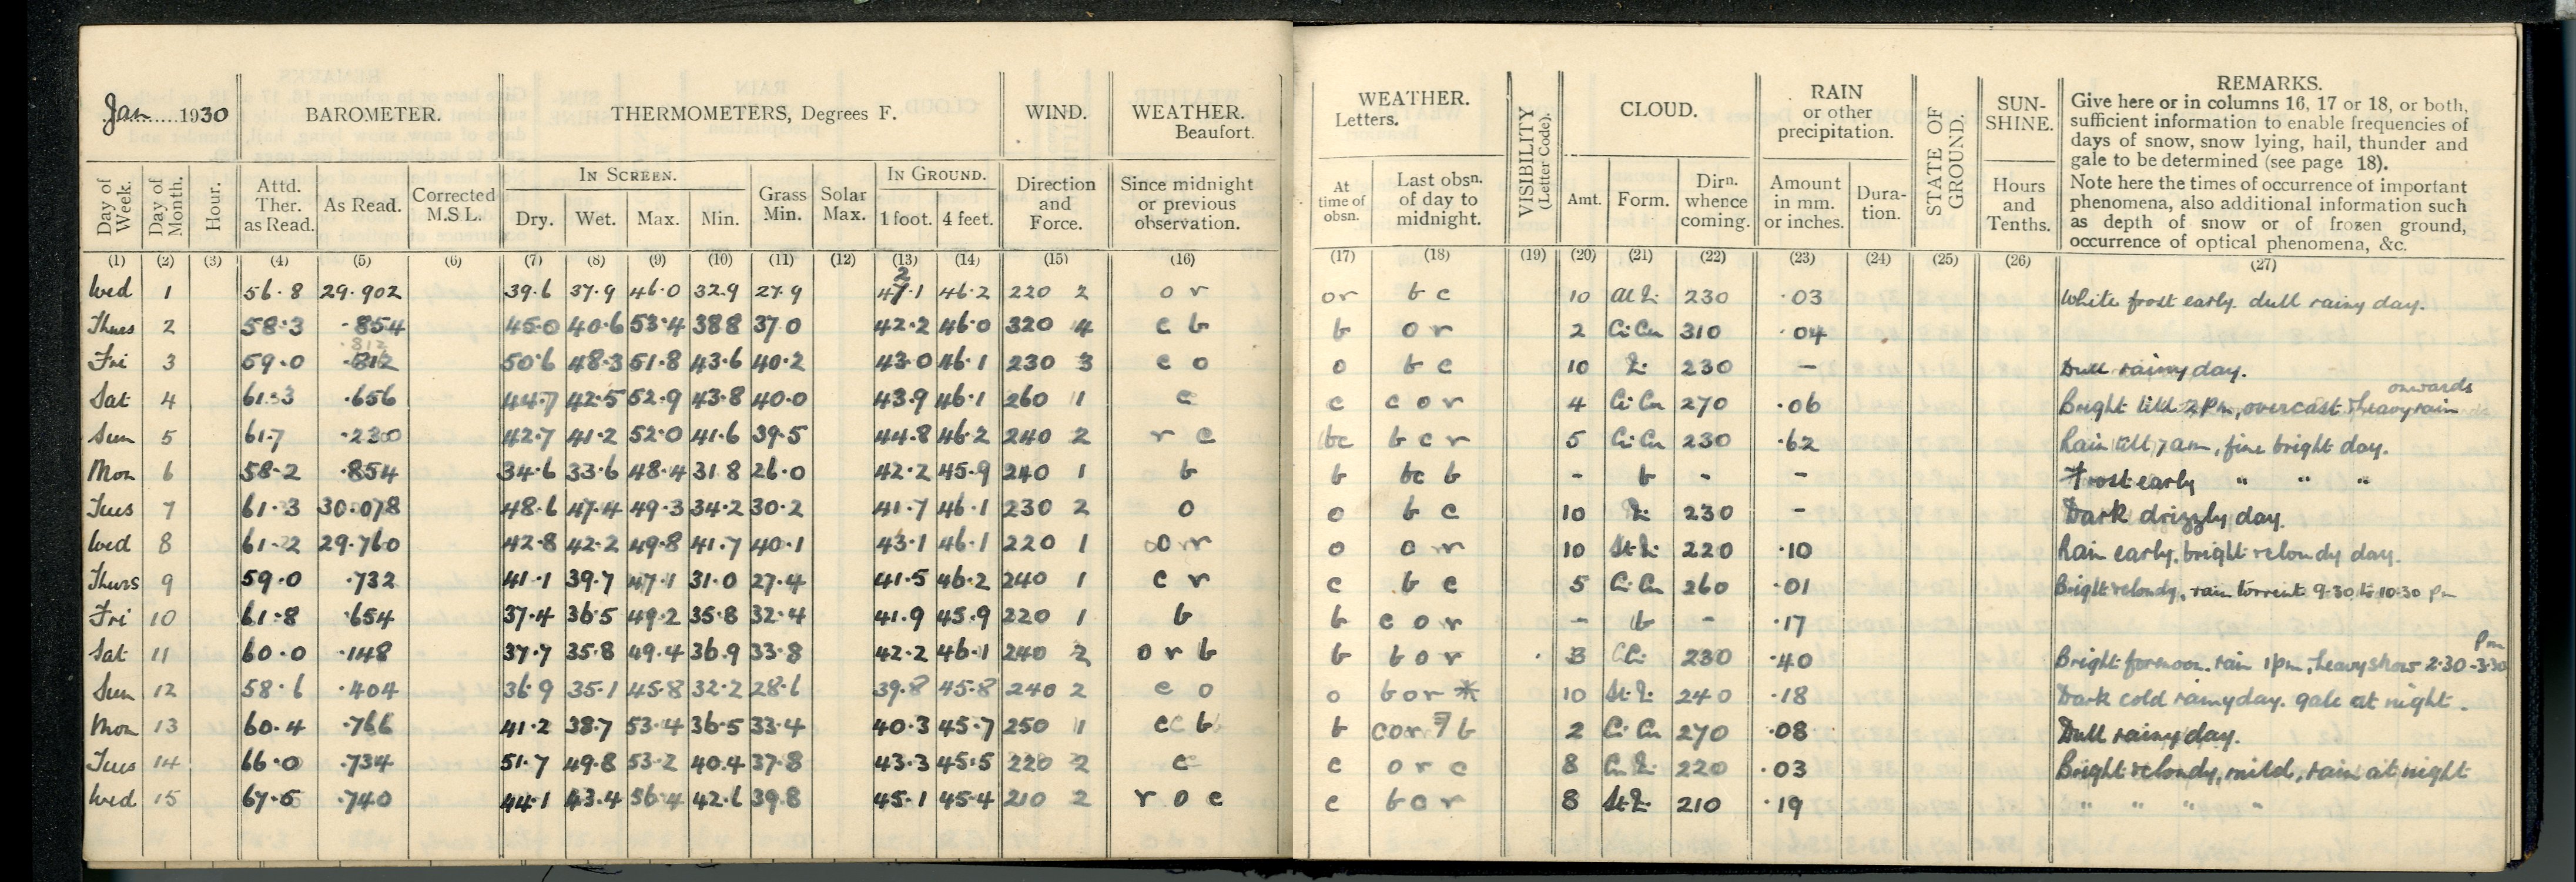 Jan 1930 BAROMETER. THERMOMETERS, Degrees F. WIND. WEATHER. Beaufort. WEATHER. Letters. VISIBILITY (Letter Code). CLOUD. RAIN or other precipitation. STATE OF GROUND. SUN-SHINE. REMARKS.
Give here or in columns 16, 17 or 18, or both,
sufficient information to enable frequencies of
days of snow, snow lying, hail, thunder and
gale to be determined (see page 18).
Note here the times of occurrence of important
phenomena, also additional information such
as depth of snow or of frozen ground,
occurrence of optical phenomena, &c.
Day of Week. Day of Month. Hour. Attd. Ther. as Read. As Read. Corrected M.S.L. IN SCREEN. Dry. Wet. Max. Min. Grass Min. Solar Max. IN GROUND. 1 foot. 4 feet. Direction and Force. Since midnight or previous observation. At time of obsn. Last obsn. of day to midnight. Amt. Form. Dirn. whence coming. Amount in mm. or inches. Dura-tion. Hours and Tenths.
(1) (2) (3) (4) (5) (6) (7) (8) (9) (10) (11) (12) (13) (14) (15) (16) (17) (18) (19) (20) (21) (22) (23) (24) (25) (26) (27)
Wed 1 56.8 29.902 39.6 37.9 46.0 32.9 27.9 42.1 46.2 220 2 o r or b c 10 230 .03 White frost early. dull rainy day.
Thurs 2 58.3 .854 45.0 40.6 53.4 38.8 37.0 42.2 46.0 320 4 c b b o r 2 Ci Cu 310 .04
Fri 3 59.0 .812 50.6 48.3 51.8 43.6 40.2 43.0 46.1 230 3 c o o b c 10 230 – Dull rainy day.
Sat 4 61.3 .656 44.7 42.5 52.9 43.8 40.0 43.9 46.1 260 1 c c c o r 4 Ci Cu 270 .06 Bright till 2pm, overcast & heavy rain onwards
Sun 5 61.7 .230 42.7 41.2 52.0 41.6 39.5 44.8 46.2 240 2 r c bc b c r 5 Ci Cu 230 .62 Rain till 7am, fine bright day.
Mon 6 58.2 .854 34.6 33.6 48.4 31.8 26.0 42.2 45.9 240 1 b b bc b – b – – Frost early " " "
Tues 7 61.3 30.078 48.6 47.4 49.3 34.2 30.2 41.7 46.1 230 2 o o b c 10 230 – Dark drizzly day.
Wed 8 61.2 29.760 42.8 42.2 49.8 41.7 40.1 43.1 46.1 220 1 o r o o r 10 220 .10 Rain early. bright & cloudy day.
Thurs 9 59.0 .732 41.1 39.7 47.1 31.0 27.4 41.5 46.2 240 1 c r c b c 5 Ci Cu 260 .01 Bright & cloudy, rain torrent 9-30 to 10-30 pm
Fri 10 61.8 .654 37.4 36.5 49.2 35.8 32.4 41.9 45.9 220 1 b b c o r – b – .17
Sat 11 60.0 .148 37.7 35.8 49.4 36.9 33.8 42.2 46.1 240 2 o r b b b o r 3 230 .40 Bright fornoon. rain 1pm, heavy 2-30 - 3-30 pm
Sun 12 58.6 .404 36.9 35.1 45.8 32.2 28.6 39.8 45.8 240 2 c o o b o r * 10 240 .18 Dark cold rainy day. gale at night.
Mon 13 60.4 .766 41.2 38.7 53.4 36.5 33.4 40.3 45.7 250 1 c b b c o r b 2 Ci Cu 270 .08 Dull rainy day.
Tues 14 66.0 .734 51.7 49.8 53.2 40.4 37.8 43.3 45.5 220 2 c c o r c 8 220 .03 Bright & cloudy, mild, rain at night
Wed 15 67.5 .740 44.1 43.4 56.4 42.6 39.8 45.1 45.4 210 2 r o c c b o r 8 210 .19 " " " "